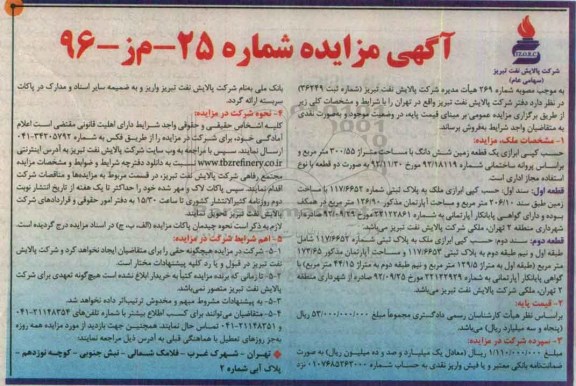 آگهی مزایده شماره ۲۵-م‌ز-۹۶
شرکت پالایش نفت تبریز
(سهامی عام)
به موجب مصوبه شماره ۲۶۹ هیأت مدیره شرکت پالایش نفت تبریز (شماره ثبت ۳۶۲۴۹)
در نظر دارد دفتر شرکت پالایش نفت تبریز واقع در تهران را با شرایط و مشخصات کلی زیر
از طریق برگزاری مزایده عمومی بر مبنای قیمت پایه، در وضعیت موجود و بصورت نقدی
به متقاضیان واجد شرایط بفروش برساند.
۱- مشخصات ملک، مزایده:
حسب کپی ابرازی یک قطعه زمین شش دانگ با مساحت متراژ ۳۰۰/۵۵ متر مربع و
براساس پروانه ساختمانی شماره ۹۲/۱۸۱۱۹ مورخ ۹۲/۱۱/۳۰ به صورت دو قطعه با نوع
استفاده مجاز اداری است.
قطعه اول: سند اول: حسب کپی ابرازی ملک به پلاک ثبتی شماره ۱۱۷/۶۶۵۲ با مساحت
زمین طبق سند ۲۰۶/۱۰ متر مربع و مساحت آپارتمان مذکور ۱۲۶/۹۰ متر مربع در همکف
بوده و دارای گواهی پایانکار آپارتمانی به شماره ۲۲۱۲۲۸۶۱ مورخ ۹۲/۰۹/۲۶ صادره از
شهرداری منطقه ۲ تهران، ملکی شرکت پالایش نفت تبریز می‌باشد.
قطعه دوم: سند دوم: حسب کپی ابرازی ملک به پلاک ثبتی شماره ۱۱۷/۶۶۵۲ شامل
طبقه اول و نیم طبقه دوم به پلاک ثبتی ۱۱۷/۶۶۵۳ و مساحت آپارتمان مذکور ۱۷۳/۶۵
متر مربع (طبقه اول به متراژ ۱۲۹/۵ متر مربع و نیم طبقه دوم به متراژ ۴۴/۱۵ متر مربع) با
گواهی پایانکار آپارتمانی به شماره ۲۲۱۲۲۹۲۹ مورخ ۹۲/۰۹/۲۵ صادره از شهرداری منطقه
۲ تهران، ملکی شرکت پالایش نفت تبریز می‌باشد.
۲- قیمت پایه:
براساس نظر هیأت کارشناسان رسمی دادگستری مجموعاً مبلغ ۵۳/۰۰۰/۰۰۰/۰۰۰ ریال
(پنجاه و سه میلیارد ریال) می‌باشد.
۳- سپرده شرکت در مزایده:
مبلغ ۱/۱۱۰/۰۰۰/۰۰۰ ریال (معادل یک میلیارد و صد و ده میلیون ریال) به صورت
ضمانتنامه بانکی معتبر و یا فیش واریز نقدی به حساب شماره ۰۱۰۷۶۸۵۳۶۳۰۰۰ نزد
بانک ملی بنام شرکت پالایش نفت تبریز واریز و به ضمیمه سایر اسناد و مدارک در پاکات
سربسته ارائه گردد.
۴- نحوه شرکت در مزایده:
کلیه اشخاص حقیقی و حقوقی واجد شرایط دارای اهلیت قانونی مقتضی است اعلام
آمادگی خود، برای شرکت در مزایده را از طریق فکس به شماره ۳۴۲۰۵۷۹۲-۰۴۱
ارسال نمایند. سپس با مراجعه به وب سایت شرکت پالایش نفت تبریز به آدرس اینترنتی
www.tbzrefinery.co.ir نسبت به دانلود دفترچه شرایط و ضوابط و مشخصات مزایده
مجتمع رفاهی شرکت پالایش نفت تبریز، در قسمت مربوط به مزایده‌ها و مناقصات شرکت
اقدام نمایند. سپس پاکات لاک و مهر شده خود را حداکثر تا یک هفته از تاریخ انتشار نوبت
دوم روزنامه کثیرالانتشار کشوری تا ساعت ۱۵/۳۰ به دفتر امور حقوقی و قراردادهای شرکت
پالایش نفت تبریز تحویل نمایند.
لازم به ذکر است نحوه چیدمان پاکات مزایده (الف، ب، ج) در اسناد مزایده درج گردیده است.
۵- اهم شرایط شرکت در مزایده:
۵-۱- شرکت در مزایده هیچگونه حقی را برای متقاضیان ایجاد نخواهد کرد و شرکت پالایش
نفت تبریز در قبول و یا رد کلیه پیشنهادات مختار است.
۵-۲- تا زمانی که برنده مزایده کتباً به خریدار ابلاغ نشده است هیچگونه تعهدی برای شرکت
پالایش نفت تبریز متصور نمی‌باشد.
۵-۳- به پیشنهادات مشروط مبهم و مخدوش ترتیب‌اثر داده نخواهد شد.
۵-۴- متقاضیان می‌توانند برای کسب اطلاع بیشتر با شماره تلفن‌های ۲۱۱۴۸۳۵۴-۰۴۱
و ۲۱۱۴۸۳۵۱-۰۴۱ تماس حاصل نمایند. همچنین جهت بازدید از مورد مزایده همه روزه
به‌جز روزهای تعطیل با هماهنگی قبلی به آدرس ذیل مراجعه نمایند:
تهران - شهرک غرب - فلامک شمالی - نبش جنوبی - کوچه نوزدهم -
پلاک آبی شماره ۲